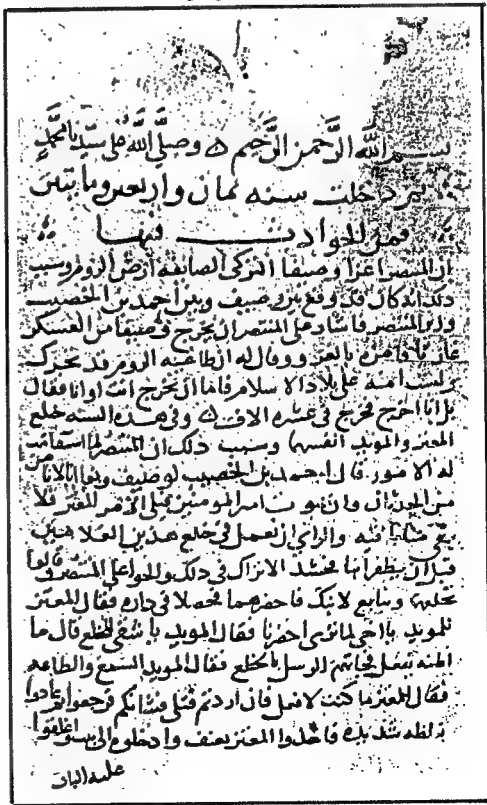 بسم الله الرحمن الرحيم وصلى الله على سيدنا محمد
ثم دخلت سنه ثمان واربعين وما يتين
فمن الحوادث فيها
ان المنتصر اغزا وصيفا التركى الصائفه ارض الروم وسبب
ذلك انه كان قد وقع بين وصيف وبين احمد بن الخصيب
وزير المنتصر فاشار على المنتصر ان يخرج وصيفا من العسكر
غازيا فامره بالغزو وقال له ان طاغيه الروم قد تحرك
ولست امنه على بلاد الاسلام فاما ان تخرج انت او انا فقال
بل انا اخرج فخرج فى عشره الاف وفى هذه السنه خلع
المعتز والمويد انفسهما وسبب ذلك ان المنتصر لما استقامت
له الامور قال احمد بن الخصيب لوصيف وبغا انا لا نا من
من الحدثان وان يموت امير المومنين فيلى الامر المعتز فلا
يبقى منا باقيه والراى ان نعمل فى خلع هذين الغلامين
قبل ان يظفرا بنا فجد الاتراك فى ذلك والحوا على المنتصر وقالوا
نخلعهما ونبايع لابنك فاحضرهما فجعلا فى دار فقال المعتز
للمويد يا اخى لم ترى احضرنا فقال المويد يا شقى للخلع قال ما
اظنه يفعل فجاتهم الرسل بالخلع فقال المويد السمع والطاعه
فقال المعتز ما كنت لافعل فان اردتم قتلى فشانكم فرجعوا ثم عادوا
بغلظه شديده فاخذوا المعتز بعنف وادخلوه الى بيت واغلقوا
عليه الباب